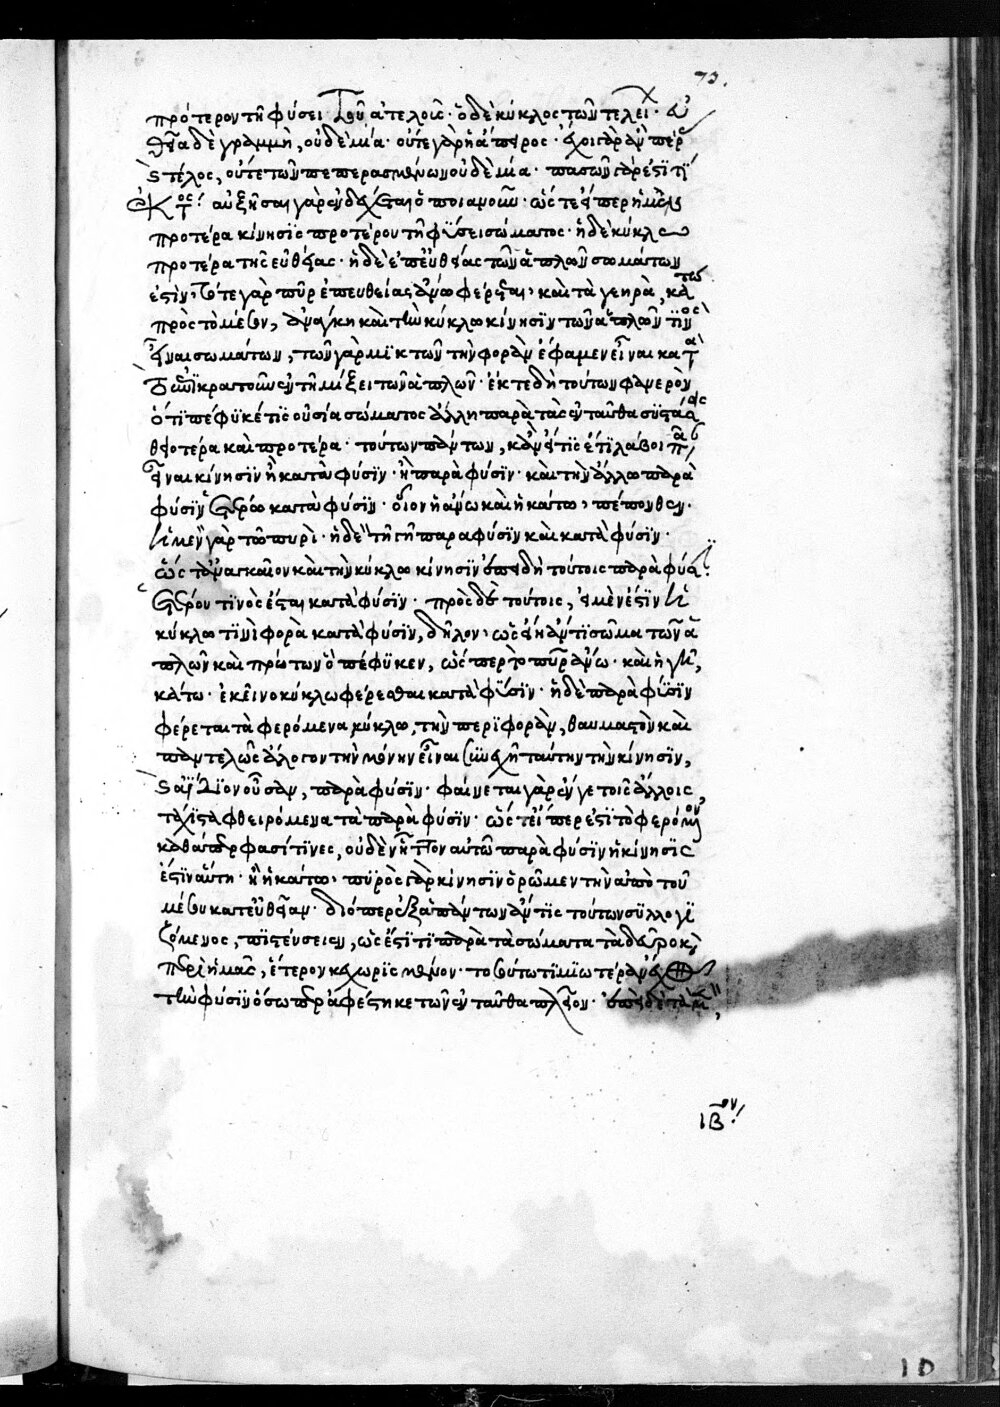 73.
πρότερον τῆ φύσει τοῦ ἀτελοῦς· ὁ δὲ κύκλος τῶν τελείων· εὐ
θεῖα δὲ γραμμὴ, οὐδεμία· οὔτε γὰρ ἡ ἄπειρος· ἔχοι γὰρ ἂν πέρας
καὶ τέλος, οὔτε τῶν πεπερασμένων οὐδεμία· πασῶν γάρ ἐστί τι
ἐκτός· αὐξῆσαι γὰρ ἐνδέχεται ὁποιανοῦν· ὥστε εἴπερ ἡ μὲν
προτέρα κίνησις προτέρου τῆ φύσει σώματος· ἡ δὲ κύκλω
προτέρα τῆς εὐθείας· ἡ δὲ ἐπ' εὐθείας τῶν ἁπλῶν σωμάτων
ἐστὶν· τό τε γὰρ πῦρ ἐπ' εὐθείας ἄνω φέρεται· καὶ τὰ γεηρὰ, κάτω
πρὸς τὸ μέσον, ἀνάγκη καὶ τὴν κύκλω κίνησιν τῶν ἁπλῶν τινὸς
εἶναι σωμάτων, τῶν γὰρ μικτῶν τὴν φορὰν ἔφαμεν εἶναι κατὰ
τὸ ἐπικρατοῦν ἐν τῆ μίξει τῶν ἁπλῶν· ἔκ τε δὴ τούτων φανερὸν
ὅτι πέφυκέ τις οὐσία σώματος ἄλλη παρὰ τὰς ἐνταῦθα συστάσεις
θειοτέρα καὶ προτέρα· τούτων πάντων, κἂν εἴ τις ἔτι λάβοι πᾶσαν
εἶναι κίνησιν ἢ κατὰ φύσιν· ἢ παρὰ φύσιν· καὶ τὴν ἄλλω παρὰ
φύσιν ἑτέρω κατὰ φύσιν· οἷον ἡ ἄνω καὶ ἡ κάτω· πέπονθεν·
ἡ μὲν γὰρ τῶ πυρὶ· ἡ δὲ τῆ γῆ παρὰ φύσιν καὶ κατὰ φύσιν·
ὥστ' ἀναγκαῖον καὶ τὴν κύκλω κίνησιν ἐπειδὴ τούτοις παρὰ φύσιν
ἑτέρου τινὸς ἔσται κατὰ φύσιν· πρὸς δὲ τούτοις, εἰ μέν ἐστιν ἡ
κύκλω τινὶ φορὰ κατὰ φύσιν, δῆλον· ὡς εἴη ἄν τι σῶμα τῶν ἁ
πλῶν καὶ πρώτων ὃ πέφυκεν, ὥσπερ τὸ πῦρ ἄνω· καὶ ἡ γῆ,
κάτω· ἐκεῖνο κύκλω φέρεσθαι κατὰ φύσιν· ἡ δὲ παρὰ φύσιν
φέρεται τὰ φερόμενα κύκλω, τὴν περιφορὰν, θαυμαστὸν καὶ
παντελῶς ἄλογον τὴν μόνην εἶναι συνεχῆ ταύτην τὴν κίνησιν,
καὶ ἀΐδιον οὖσαν, παρὰ φύσιν· φαίνεται γὰρ ἔν γε τοῖς ἄλλοις,
τάχιστα φθειρόμενα τὰ παρὰ φύσιν· ὥστ' εἴπερ ἐστὶ τὸ φερόμενον
καθάπερ φασί τινες, οὐδὲν ἧττον αὐτῶ παρὰ φύσιν ἡ κίνησις
ἐστὶν αὕτη· ἢ ἡ κάτω· πυρὸς γὰρ κίνησιν ὁρῶμεν τὴν ἀπὸ τοῦ
μέσου κατ' εὐθεῖαν· διόπερ ἐξ ἁπάντων ἄν τις τούτων συλλογι
ζόμενος, πιστεύσειεν, ὡς ἔστι τι παρὰ τὰ σώματα τὰ δεῦρο καὶ
περὶ ἡμᾶς, ἕτερον κεχωρισμένον· τοσούτω τιμιωτέραν ἔχον
τὴν φύσιν ὅσωπερ ἀφέστηκε τῶν ἐνταῦθα πλεῖον· ἐπεὶ δὲ τὰ μὲν
ιβ ον
10